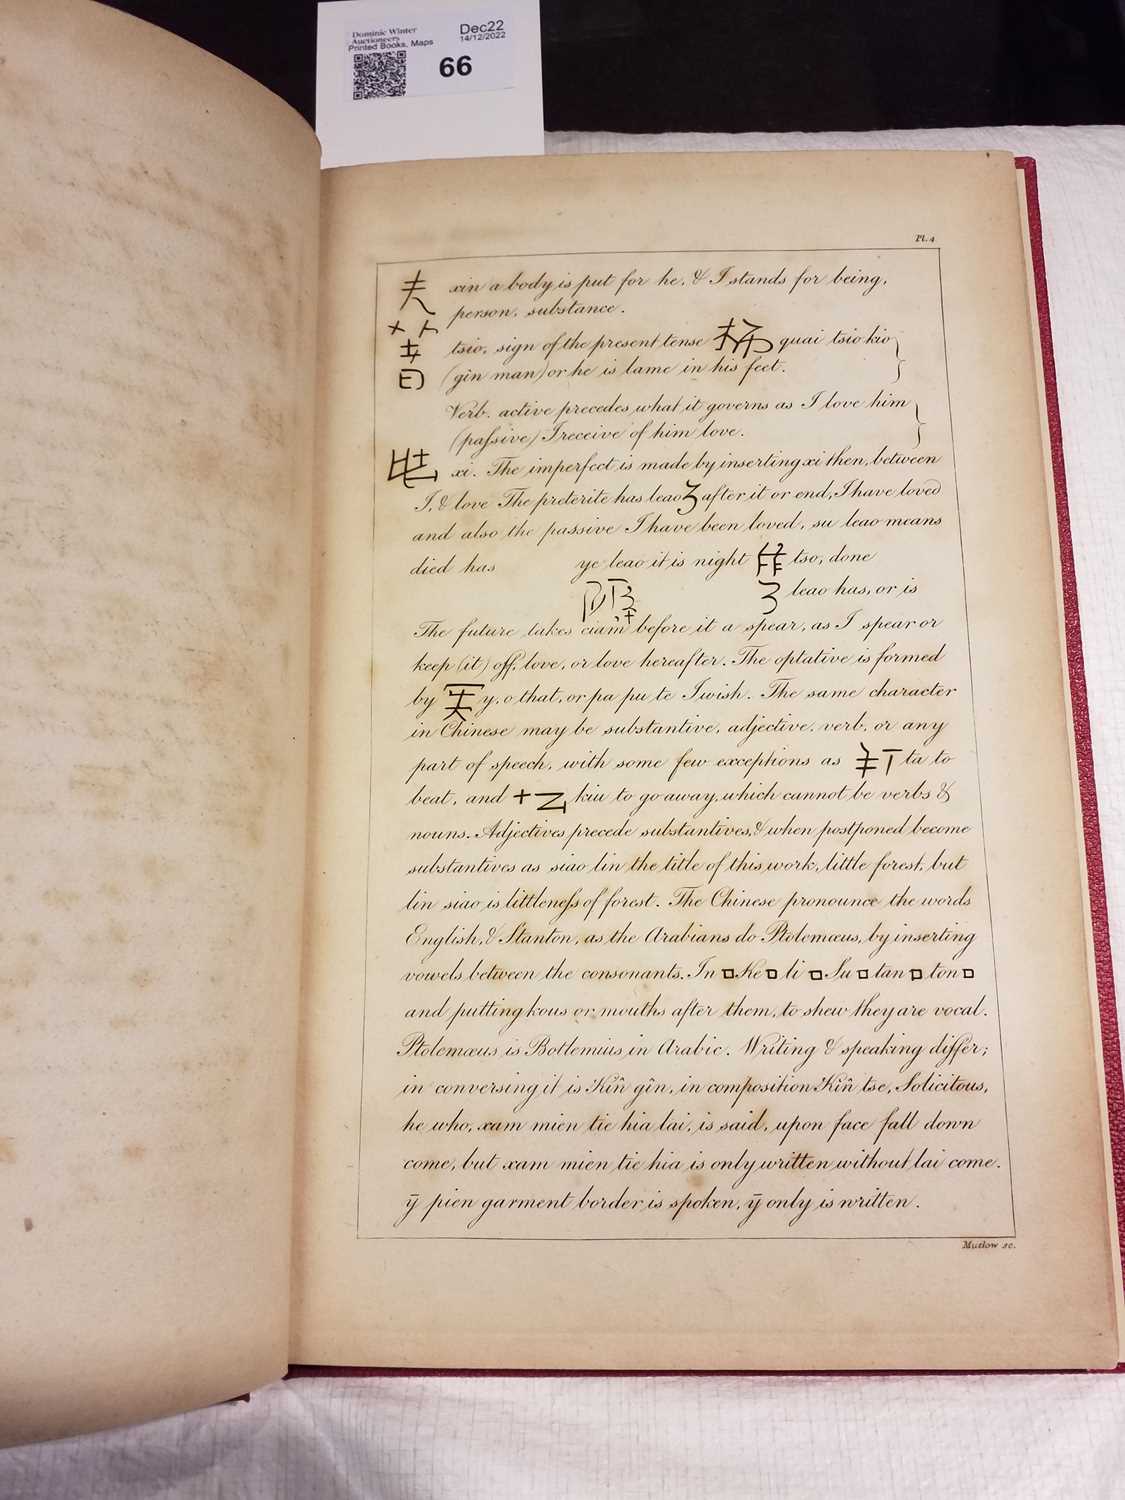 Dominic Winter
Auctioneers
Printed Books, Maps
Dec22
14/12/2022
66
Pl. 4
xin a body is put for he, & I stands for being,
person, substance.
tsio, sign of the present tense quai tsio kio
(gin man) or he is lame in his feet.
Verb. active precedes what it governs as I love him
(passive) I receive of him love.
xi. The imperfect is made by inserting xi then, between
I, & love The preterite has leao 了 after it or end, I have loved
and also the passive I have been loved, su leao means
died has ye leao it is night tso, done
了 leao has, or is
The future takes ciam before it a spear, as I spear or
keep (it) off, love, or love hereafter. The optative is formed
by y, o that, or pa pu te I wish. The same character
in Chinese may be substantive, adjective, verb, or any
part of speech, with some few exceptions as ta to
beat, and kiu to go away, which cannot be verbs &
nouns. Adjectives precede substantives, & when postponed become
substantives as siao lin the title of this work, little forest, but
lin siao is littleness of forest. The Chinese pronounce the words
English, & Stanton, as the Arabians do Ptolemæus, by inserting
vowels between the consonants. In 口 Ke 口 li 口 Su 口 tan 口 ton 口
and putting kous or mouths after them, to shew they are vocal.
Ptolemæus is Botlemius in Arabic. Writing & speaking differ;
in conversing it is Kiñ gin, in composition Kiñ tse, Solicitous,
he who, xam mien tie hia lai, is said, upon face fall down
come, but xam mien tie hia is only written without lai come.
ȳ pien garment border is spoken, ȳ only is written.
Mutlow sc.